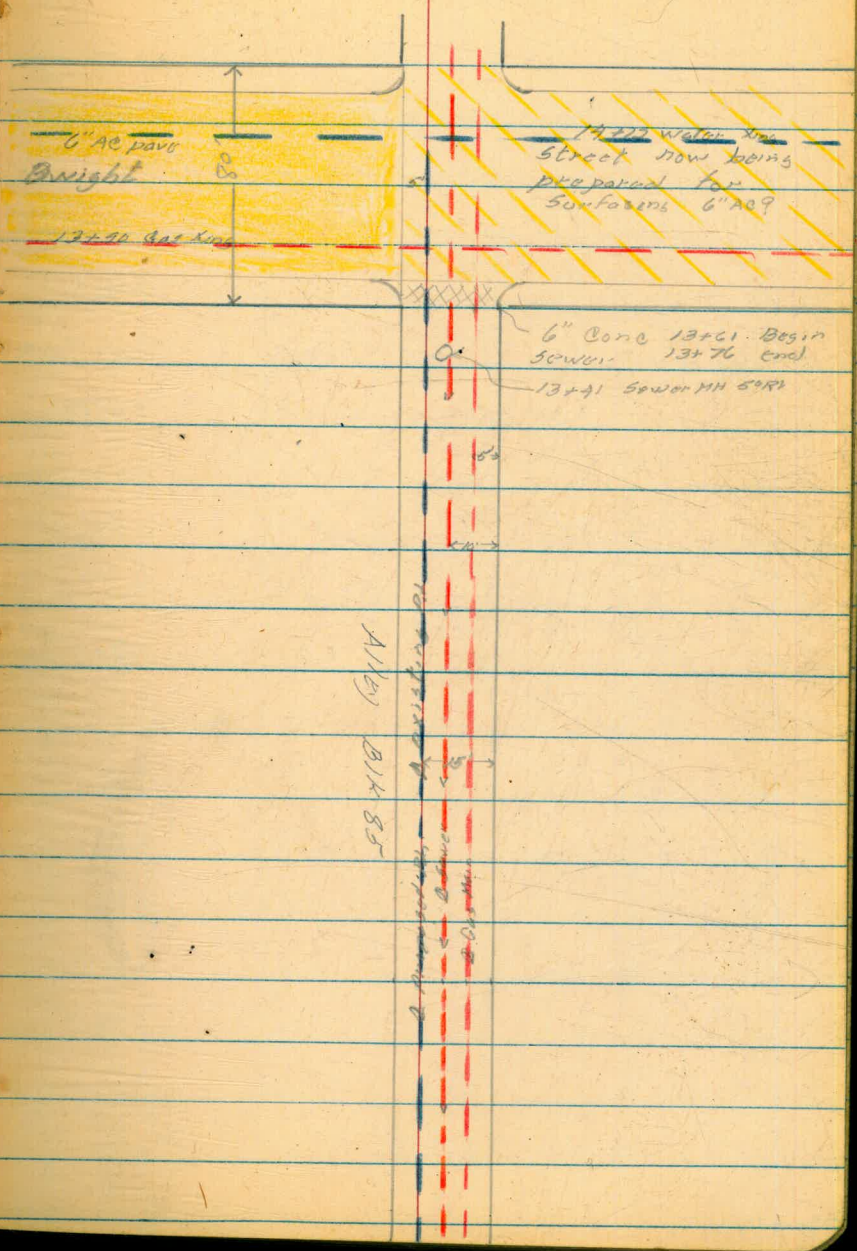 6" AC pave
Dwight
80'
13+90 Gas Xing
14+22 water Xing
Street now being
prepared for
Surfacing 6" AC?
5'
6" Conc 13+61 Begin
sewer 13+76 end
13+41 Sewer MH 5' Rt
5'
10'
15'
Alley Blk 85
existing
Sewer
Gas Main